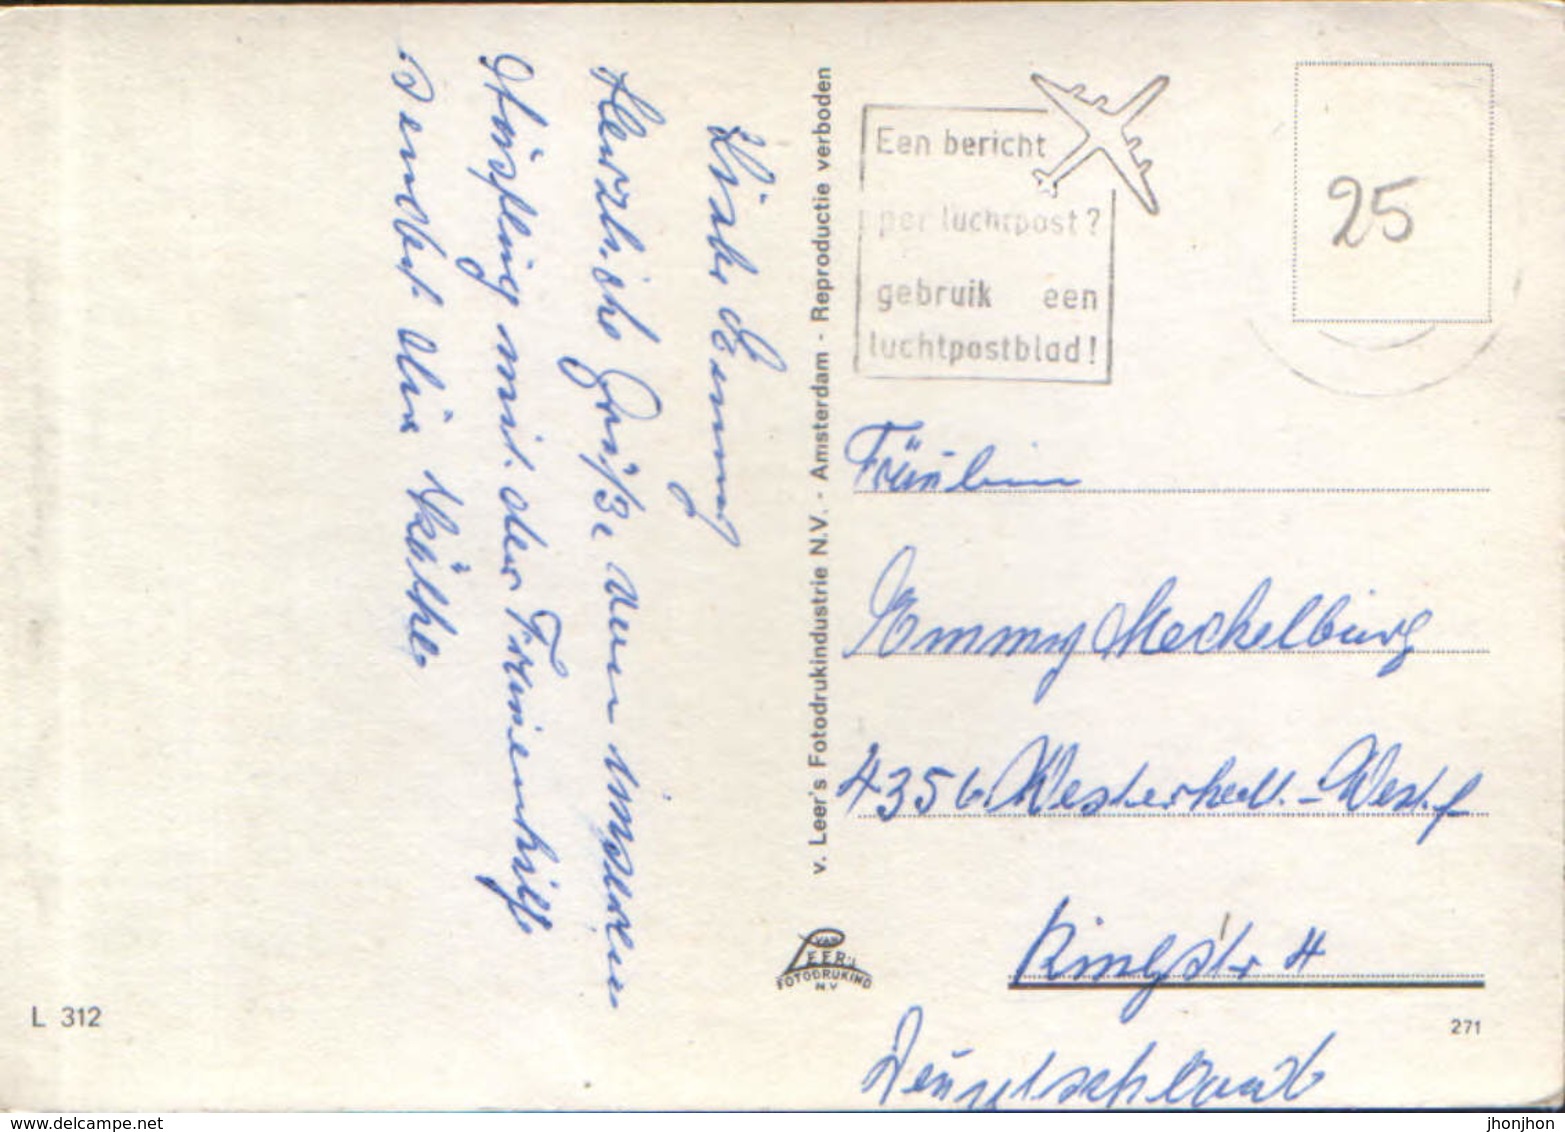 Liebe Emmy
Herzliche Grüße von unseren
Ausflug mit der Frauenhilfe
sendet dir Käthe
v. Leer's Fotodrukindustrie N.V. - Amsterdam - Reproductie verboden
Een bericht
per luchtpost?
gebruik een
luchtpostblad!
25
Fräulein
Emmy Meckelburg
4356 Westerholt-Westf
Ringstr 4
Deutschland
VAN
LEER'S
FOTODRUKIND
N.V.
L 312
271
www.delcampe.net
jhonjhon